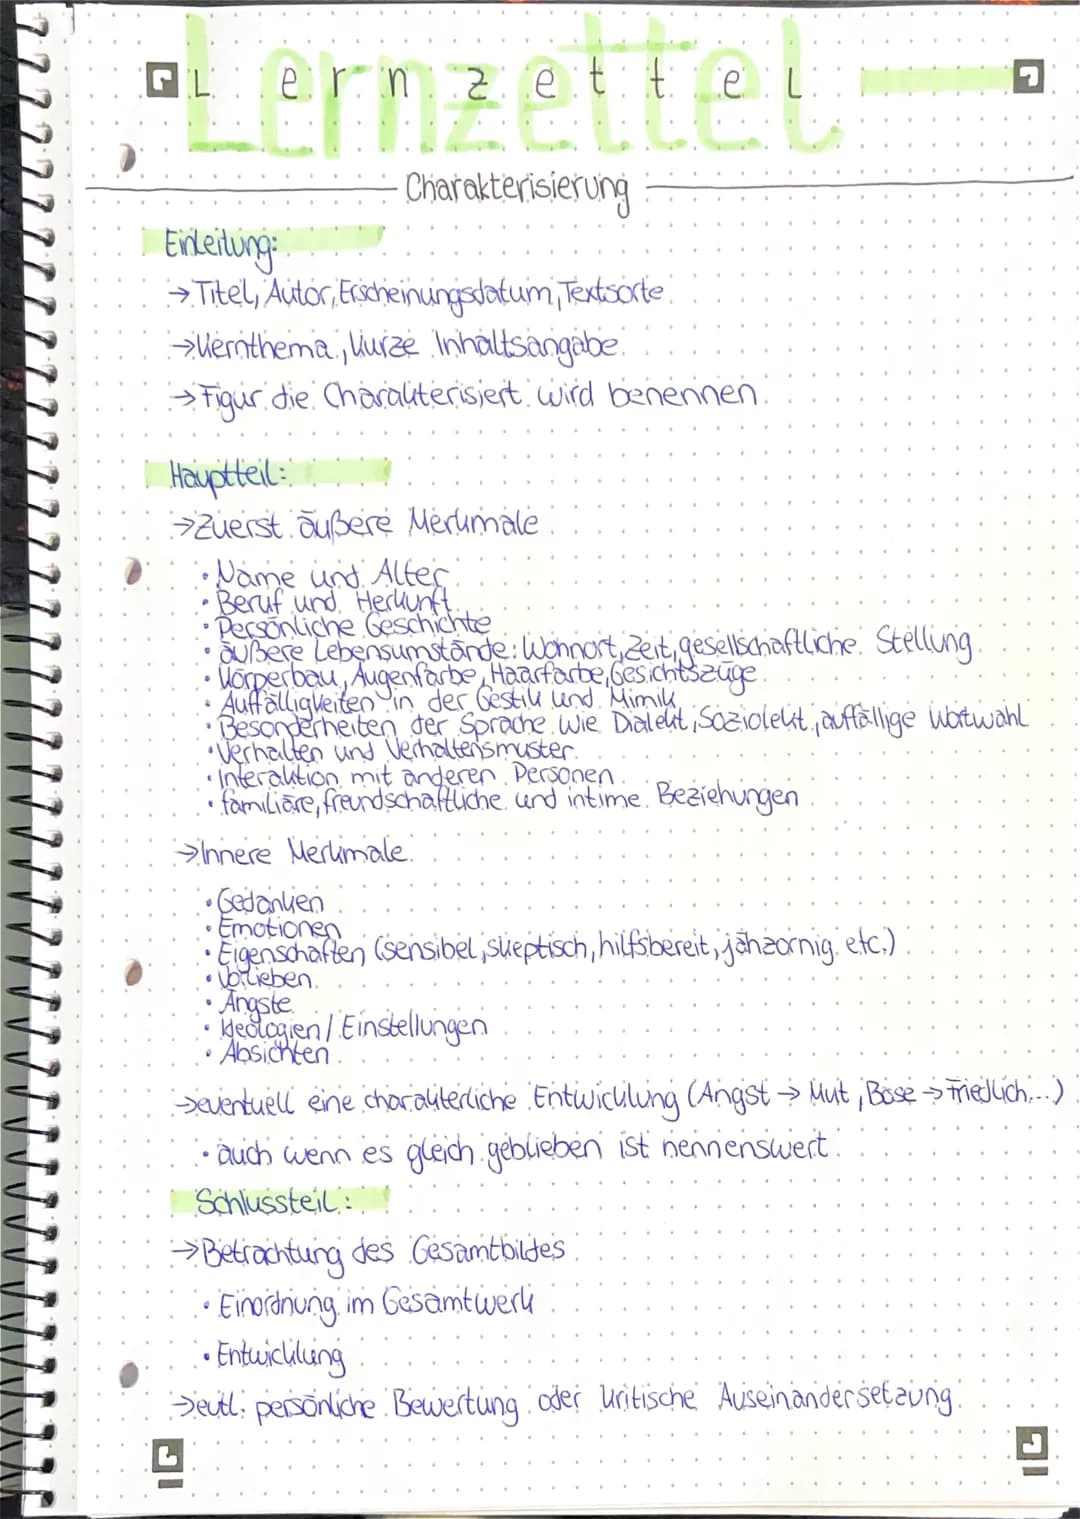 Lernzettel
Charakterisierung
Einleitung:
→ Titel, Autor, Erscheinungsdatum, Textsorte
→ Kernthema, kurze Inhaltsangabe
→ Figur die Charakterisiert wird benennen
Hauptteil:
→ Zuerst äußere Merkmale
• Name und Alter
• Beruf und Herkunft
• Persönliche Geschichte
• äußere Lebensumstände: Wohnort, Zeit, gesellschaftliche Stellung
• Körperbau, Augenfarbe, Haarfarbe, Gesichtszüge
• Auffälligkeiten in der Gestik und Mimik
• Besonderheiten der Sprache wie Dialekt, Soziolekt, auffällige Wortwahl
• Verhalten und Verhaltensmuster
• Interaktion mit anderen Personen
• familiäre, freundschaftliche und intime Beziehungen
→ Innere Merkmale
• Gedanken
• Emotionen
• Eigenschaften (sensibel, skeptisch, hilfsbereit, jähzornig etc.)
• Vorlieben
• Ängste
• Ideologien / Einstellungen
• Absichten
→ eventuell eine charakterliche Entwicklung (Angst → Mut, Böse → Friedlich...)
• auch wenn es gleich geblieben ist nennenswert
Schlussteil:
→ Betrachtung des Gesamtbildes
• Einordnung im Gesamtwerk
• Entwicklung
→ evtl. persönliche Bewertung oder kritische Auseinandersetzung